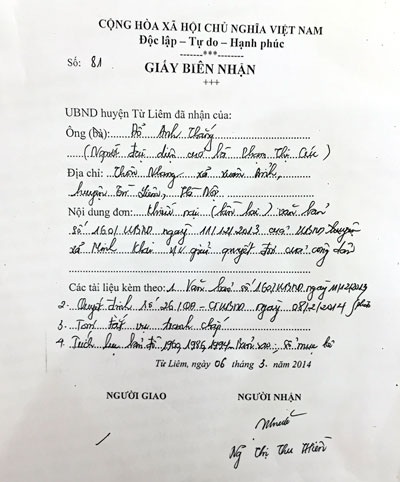 CỘNG HÒA XÃ HỘI CHỦ NGHĨA VIỆT NAM
Độc lập – Tự do – Hạnh phúc
-------***-------
Số: 81
GIẤY BIÊN NHẬN
+++
UBND huyện Từ Liêm đã nhận của:
Ông (Bà): Đỗ Anh Thắng
(Người đại diện cho bà Phạm Thị Cúc)
Địa chỉ: Thôn xã Xuân
huyện Từ Liêm, Hà Nội
Nội dung đơn: khiếu nại (lần hai) văn bản
số 160/UBND ngày 11/12/2013 của UBND
xã Minh Khai v/v giải quyết đơn của công dân
Các tài liệu kèm theo: 1. Văn bản số 160/UBND ngày 11/12/2013
2. Quyết định số 26/QĐ-CTUBND ngày 08/2/2014
3. Tóm tắt vụ tranh chấp
4. Trích lục bản đồ 1960, 1986, 1994 sổ mục kê
Từ Liêm, ngày 06 tháng 3. năm 2014
NGƯỜI GIAO NGƯỜI NHẬN
Ng Thị Thu Hiền